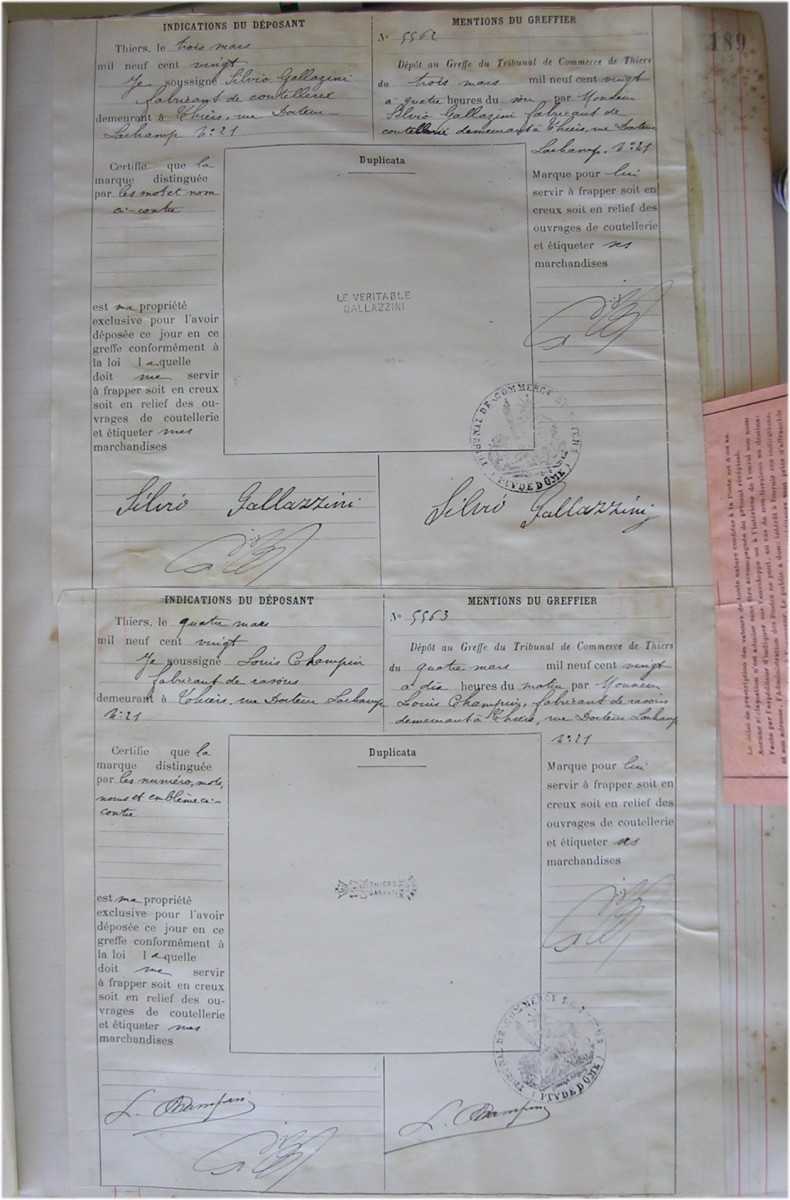 189
INDICATIONS DU DÉPOSANT
Thiers, le trois mars
mil neuf cent vingt
Je soussigné Silvio Gallazini
fabricant de coutellerie
demeurant à Thiers, rue Docteur
Lachamp N° 21
Certifie que la
marque distinguée
par les mot et nom
ci-contre
est ma propriété
exclusive pour l'avoir
déposée ce jour en ce
greffe conformément à
la loi laquelle
doit me servir
à frapper soit en creux
soit en relief des ou-
vrages de coutellerie
et étiqueter mes
marchandises
MENTIONS DU GREFFIER
N° 5562
Dépôt au Greffe du Tribunal de Commerce de Thiers
du trois mars mil neuf cent vingt
à quatre heures du soir par Monsieur
Silvio Gallazini fabricant de
coutellerie demeurant à Thiers, rue Docteur
Lachamp, N° 21
Duplicata
LE VERITABLE
GALLAZZINI
Marque pour lui
servir à frapper soit en
creux soit en relief des
ouvrages de coutellerie
et étiqueter ses
marchandises
TRIBUNAL DE COMMERCE DE THIERS
(PUY DE DOME)
Silvio Gallazzini
Silvio Gallazzini
INDICATIONS DU DÉPOSANT
Thiers, le quatre mars
mil neuf cent vingt
Je soussigné Louis Champin
fabricant de rasoirs
demeurant à Thiers, rue Docteur Lachamp
N° 21
Certifie que la
marque distinguée
par les numéro, mots,
noms et emblème ci-
contre
est ma propriété
exclusive pour l'avoir
déposée ce jour en ce
greffe conformément à
la loi laquelle
doit me servir
à frapper soit en creux
soit en relief des ou-
vrages de coutellerie
et étiqueter mes
marchandises
MENTIONS DU GREFFIER
N° 5563
Dépôt au Greffe du Tribunal de Commerce de Thiers
du quatre mars mil neuf cent vingt
à dix heures du matin par Monsieur
Louis Champin, fabricant de rasoirs
demeurant à Thiers, rue Docteur Lachamp
N° 21
Duplicata
THIERS
GARANTI
Marque pour lui
servir à frapper soit en
creux soit en relief des
ouvrages de coutellerie
et étiqueter ses
marchandises
TRIBUNAL DE COMMERCE DE THIERS
(PUY DE DOME)
L. Champin
L. Champin